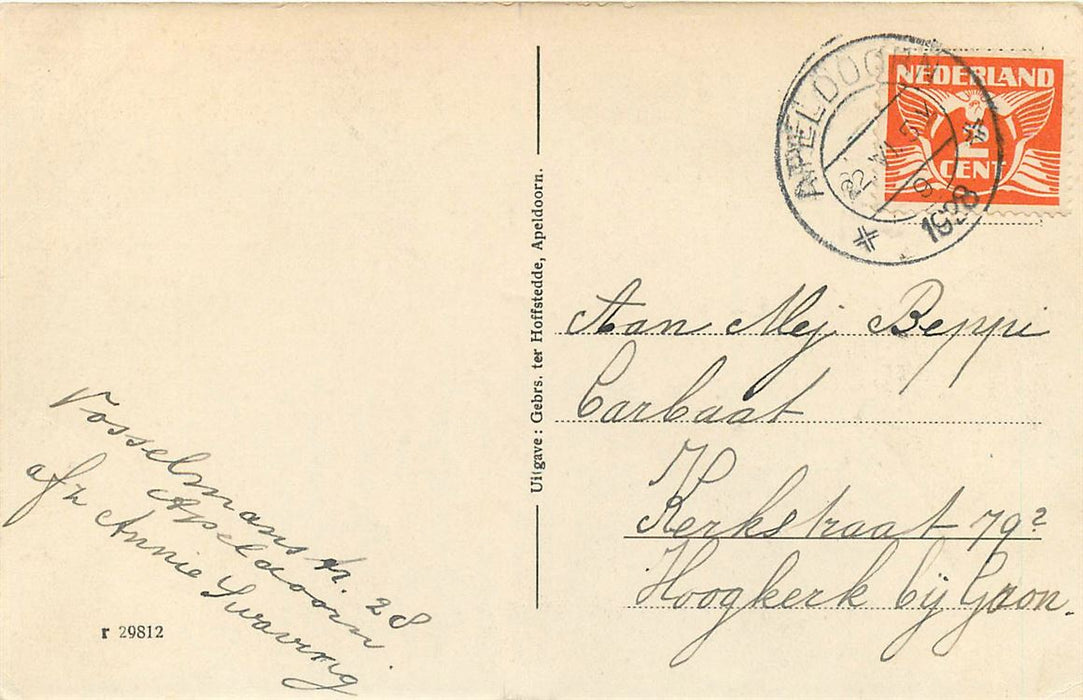 NEDERLAND
2
CENT
APELDOORN
1928
Aan Mej. Beppi
Carbaat
Kerkstraat 79?
Hoogkerk bij Gron.
Uitgave: Gebrs. ter Hoffstedde, Apeldoorn.
Vosselmanstr. 28
Apeldoorn.
afz Annie Swaving
r 29812